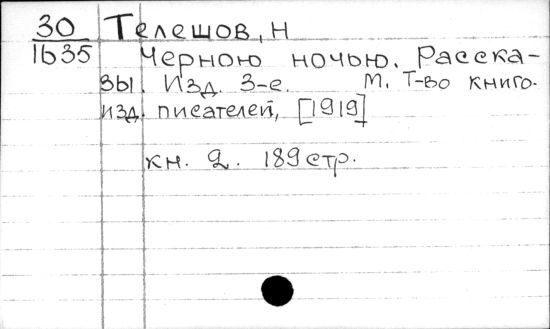 30 Телешов, Н
1635 Черною ночью. Расска-
зы. Изд. 3-е. М. Т-во книго-
изд. писателей, [1919]
кн. 2. 189 стр.